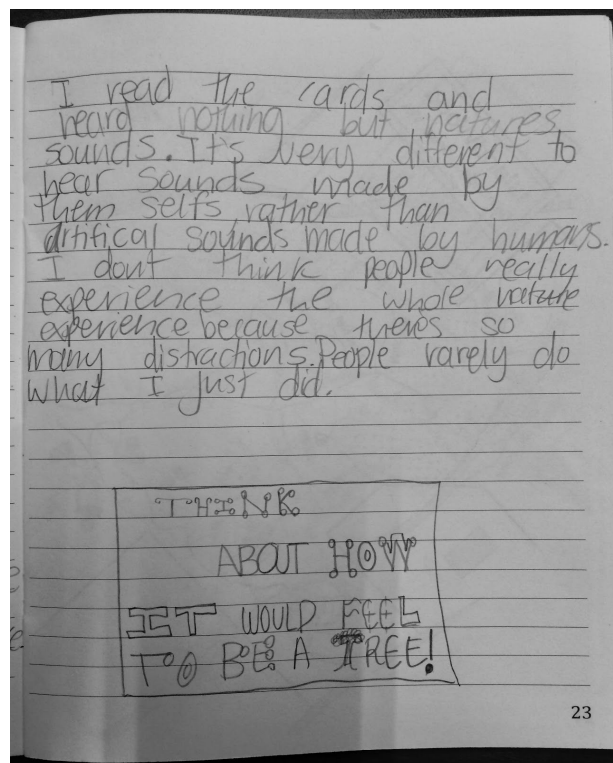 I read the cards and
heard nothing but natures
sounds. It's very different to
hear sounds made by
them selfs rather than
artifical sounds made by humans.
I dont think people really
experience the whole nature
experience because theres so
many distractions. People rarely do
what I just did.
THINK
ABOUT HOW
IT WOULD FEEL
TO BE A TREE!
23